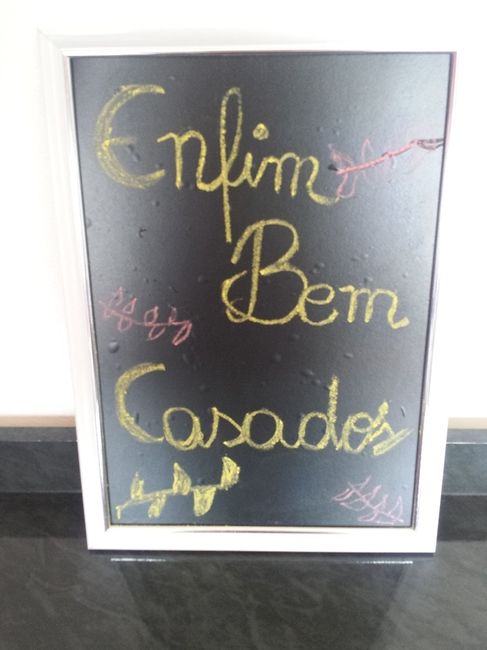 Enfim
Bem
Casados